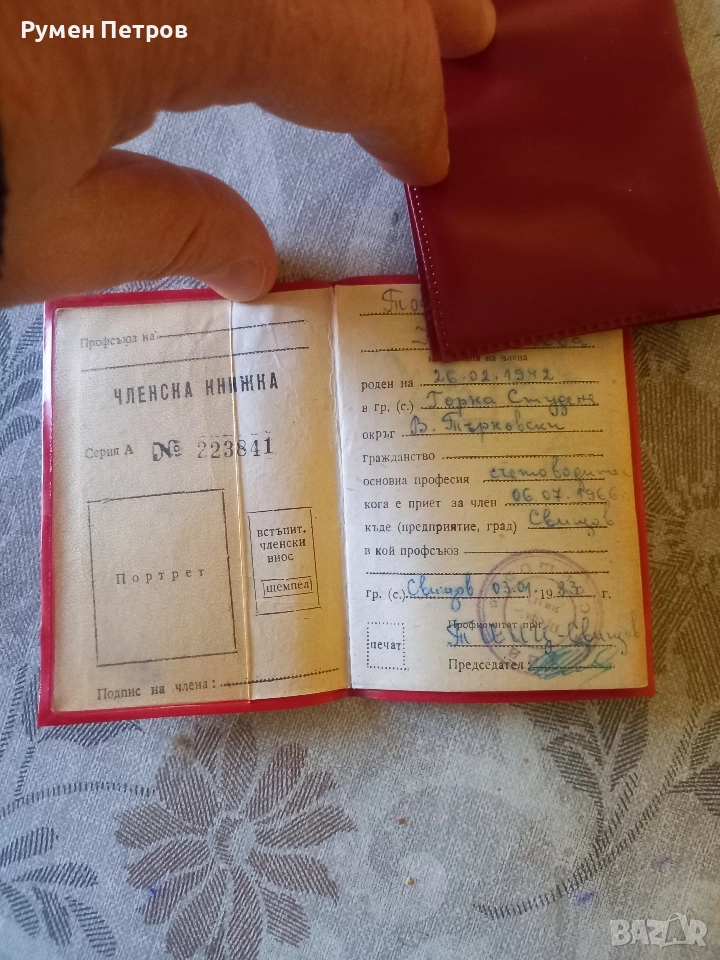 Румен Петров
Профсъюз на
ЧЛЕНСКА КНИЖКА
Серия А № 223841
Портрет
встъпит.
членски
внос
щемпел
Подпис на члена:
на члена
роден на 26.02.1942
в гр. (с.) Горна Студена
окръг В. Търновски
гражданство
основна професия счетоводител
кога е приет за член 06.07.1966
къде (предприятие, град) Свищов
в кой профсъюз
гр. (с.) Свищов 03.01 1983 г.
Профкомитет при:
печат
Свищов
Председател:
BAZAR